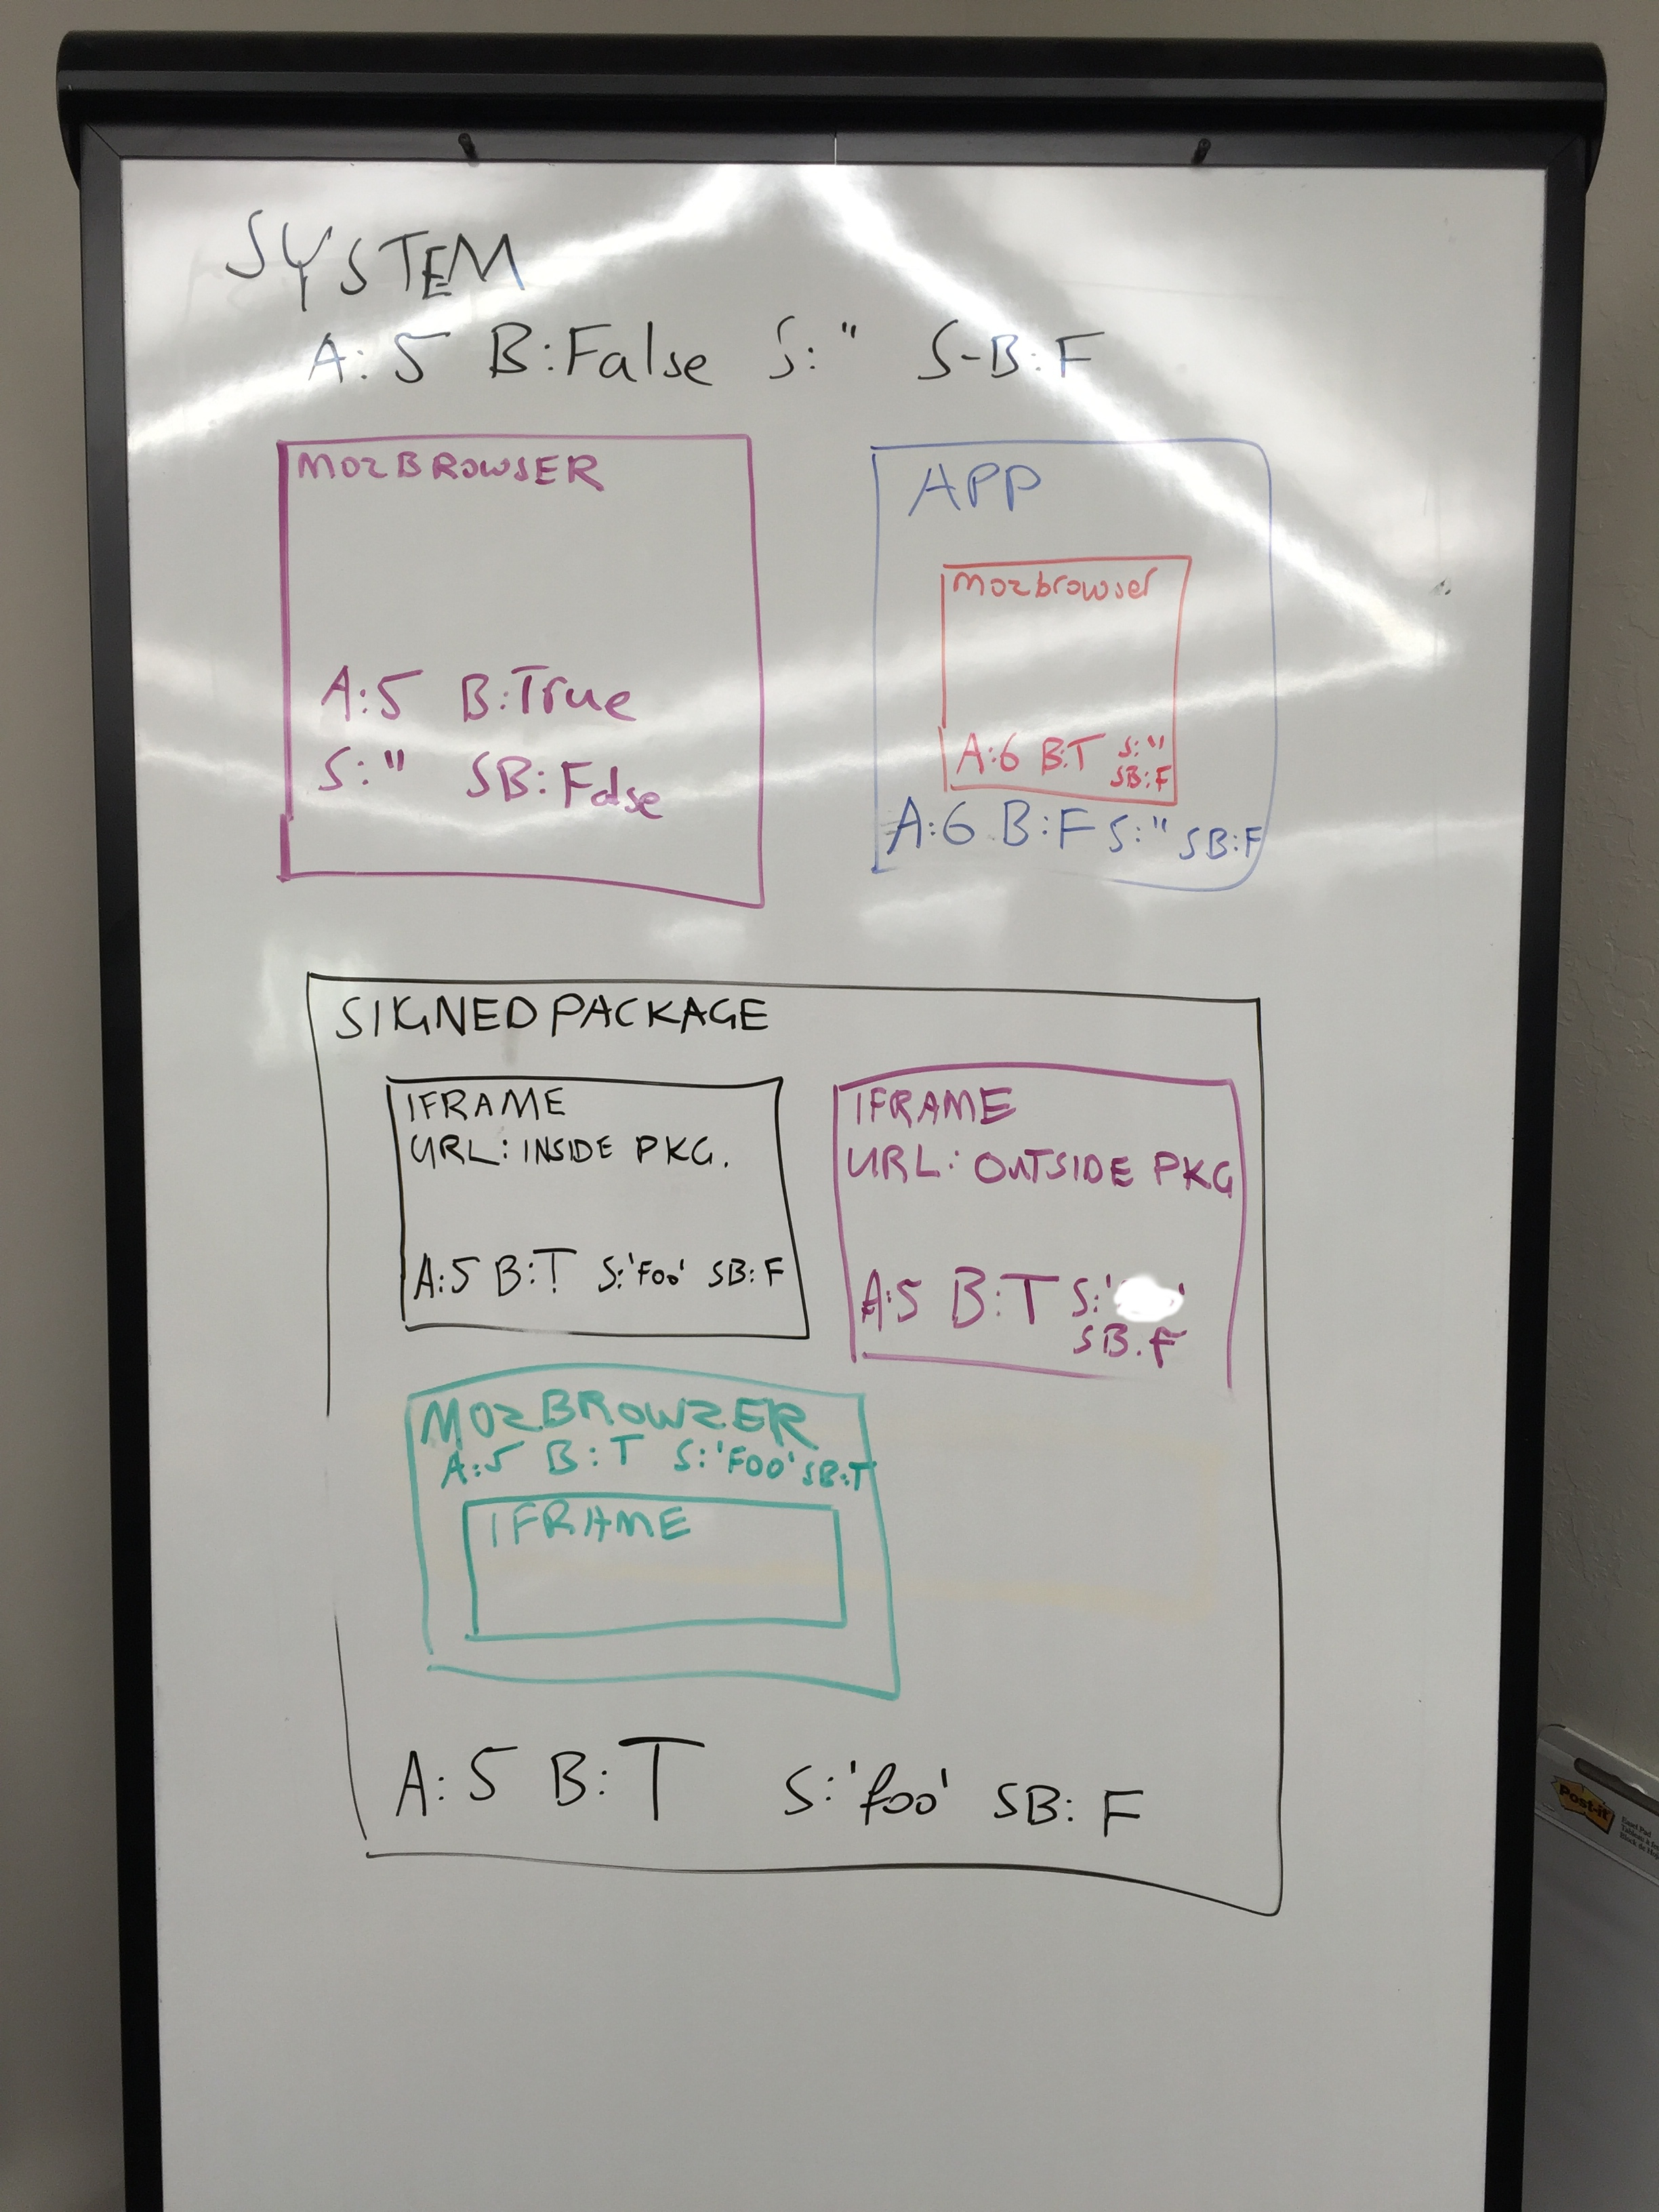 SYSTEM
A: 5 B: False S: " S-B: F
MOZBROWSER
A:5 B:True
S: " SB: False
APP
mozbrowser
A:6 B:T S:''
SB:F
A:6 B:F S:" SB:F
SIGNED PACKAGE
IFRAME
URL: INSIDE PKG.
A:5 B:T S:'Foo' SB: F
IFRAME
URL: OUTSIDE PKG
A:5 B:T S:' '
SB:F
MOZBROWZER
A:5 B:T S:'FOO' SB:T
IFRAME
A: 5 B: T S:'foo' SB: F
Post-it
Easel Pad